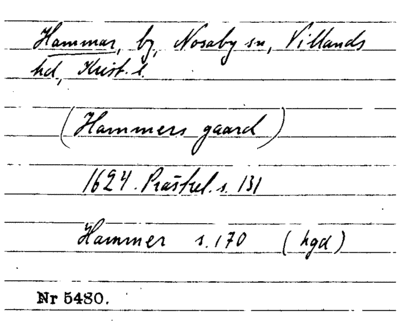 Hammar, by, Nosaby sn, Villands
hd, Krist. l.
(Hammers gaard)
1624. Prästrel. s. 131
Hammer s. 170 (hgd)
Nr 5480.